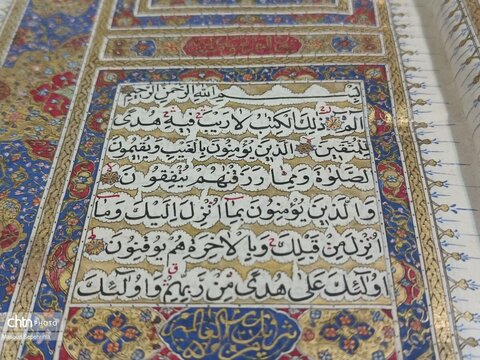 بسم الله الرحمن الرحيم
الم ذلك الكتب لا ريب فيه هدى
للمتقين الذين يؤمنون بالغيب ويقيمون
الصلوة ومما رزقنهم ينفقون
والذين يؤمنون بما انزل اليك وما
انزل من قبلك وبالاخرة هم يوقنون
اولئك على هدى من ربهم واولئك
chtn PHOTO